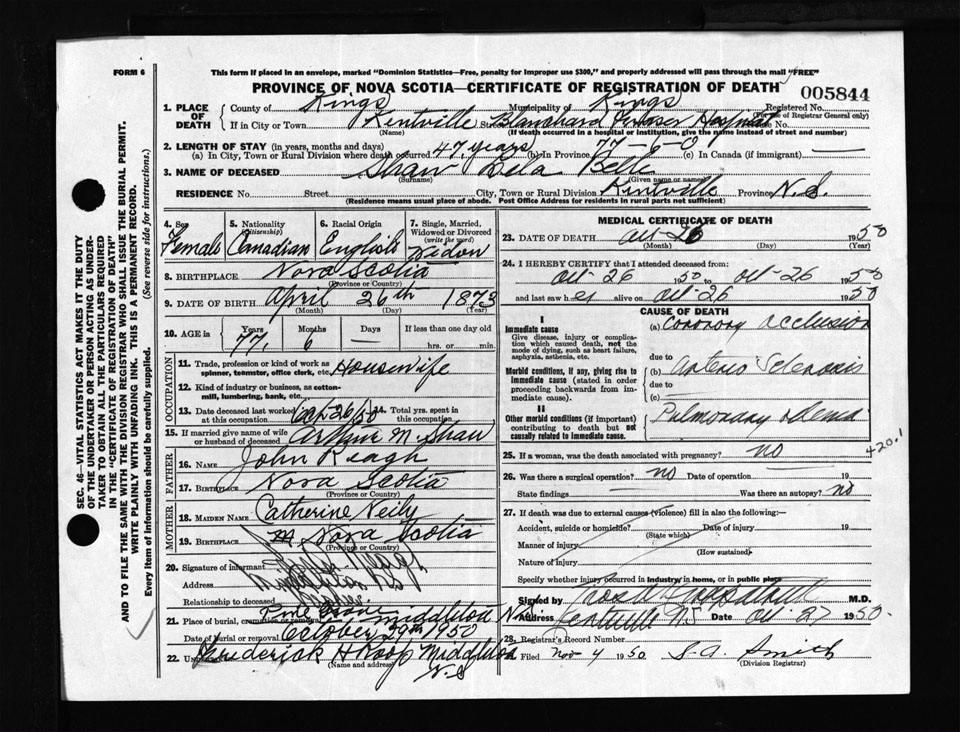 FORM 6
This form if placed in an envelope, marked "Dominion Statistics—Free, penalty for improper use $300," and properly addressed will pass through the mail "FREE"
PROVINCE OF NOVA SCOTIA—CERTIFICATE OF REGISTRATION OF DEATH
005844
1. PLACE OF DEATH County of Kings Municipality of Kings Registered No.
(For use of Registrar General only)
If in City or Town Kentville Street Blanchard Fraser Hospital No.
(Name) (If death occurred in a hospital or institution, give the name instead of street and number)
2. LENGTH OF STAY (in years, months and days)
(a) In City, Town or Rural Division where death occurred 47 years (b) in Province 77-6-0 (c) In Canada (if immigrant) —
3. NAME OF DECEASED Shaw Dela Bell
(Surname) (Given name or names)
RESIDENCE No. Street City, Town or Rural Division Kentville Province N.S.
(Residence means usual place of abode. Post Office Address for rural parts not sufficient)
4. Sex 5. Nationality (Citizenship) 6. Racial Origin 7. Single, Married, Widowed or Divorced (write the word)
Female Canadian English Widow
8. BIRTHPLACE Nova Scotia
(Province or Country)
9. DATE OF BIRTH April 26th 1873
(Month) (Day) (Year)
10. AGE in Years Months Days If less than one day old
77 6 — hrs. or min.
OCCUPATION
11. Trade, profession or kind of work as spinner, teamster, office clerk, etc. Housewife
12. Kind of industry or business, as cotton-mill, lumbering, bank, etc.
13. Date deceased last worked at this occupation 14. Total yrs. spent in this occupation
15. If married give name of wife or husband of deceased Arthur M. Shaw
FATHER
16. NAME John Reagh
17. BIRTHPLACE Nova Scotia
(Province or Country)
MOTHER
18. MAIDEN NAME Catherine Neily
19. BIRTHPLACE Nova Scotia
(Province or Country)
20. Signature of informant
Address
Relationship to deceased
21. Place of burial, cremation or removal Pine Grove Middleton N.S.
Date of burial or removal October 29th 1950
22. Undertaker Frederick H Roop Middleton
(Name and address)
N.S
MEDICAL CERTIFICATE OF DEATH
23. DATE OF DEATH Oct 26 1950
(Month) (Day) (Year)
24. I HEREBY CERTIFY that I attended deceased from:
Oct-26 1950 to Oct-26 1950
and last saw her alive on Oct-26 1950
CAUSE OF DEATH
I
Immediate cause
Give disease, injury or complication which caused death, not the mode of dying, such as heart failure, asphyxia, asthenia, etc.
(a) Coronary Occlusion
due to
Morbid conditions, if any, giving rise to immediate cause (stated in order proceeding backwards from immediate cause).
(b) Arterio Sclerosis
due to
(c) —
II
Other morbid conditions (if important) contributing to death but not causally related to immediate cause.
Pulmonary edema
420.1
25. If a woman, was the death associated with pregnancy? no
26. Was there a surgical operation? no Date of operation 19
State findings Was there an autopsy? no
27. If death was due to external causes (violence) fill in also the following:—
Accident, suicide or homicide? Date of injury 19
(State which)
Manner of injury
(How sustained)
Nature of injury
Specify whether injury occurred in industry, in home, or in public place
Signed by M.D.
Address Kentville NS Date Oct 27 1950
28. Registrar's Record Number
Filed Nov 4 1950 S.A. Smith
(Division Registrar)
SEC. 46—VITAL STATISTICS ACT MAKES IT THE DUTY
OF THE UNDERTAKER OR PERSON ACTING AS UNDER-
TAKER TO OBTAIN ALL THE PARTICULARS REQUIRED
IN THE "CERTIFICATE OF REGISTRATION OF DEATH"
AND TO FILE THE SAME WITH THE DIVISION REGISTRAR WHO SHALL ISSUE THE BURIAL PERMIT.
WRITE PLAINLY WITH UNFADING INK. THIS IS A PERMANENT RECORD.
Every item of information should be carefully supplied. (See reverse side for instructions.)